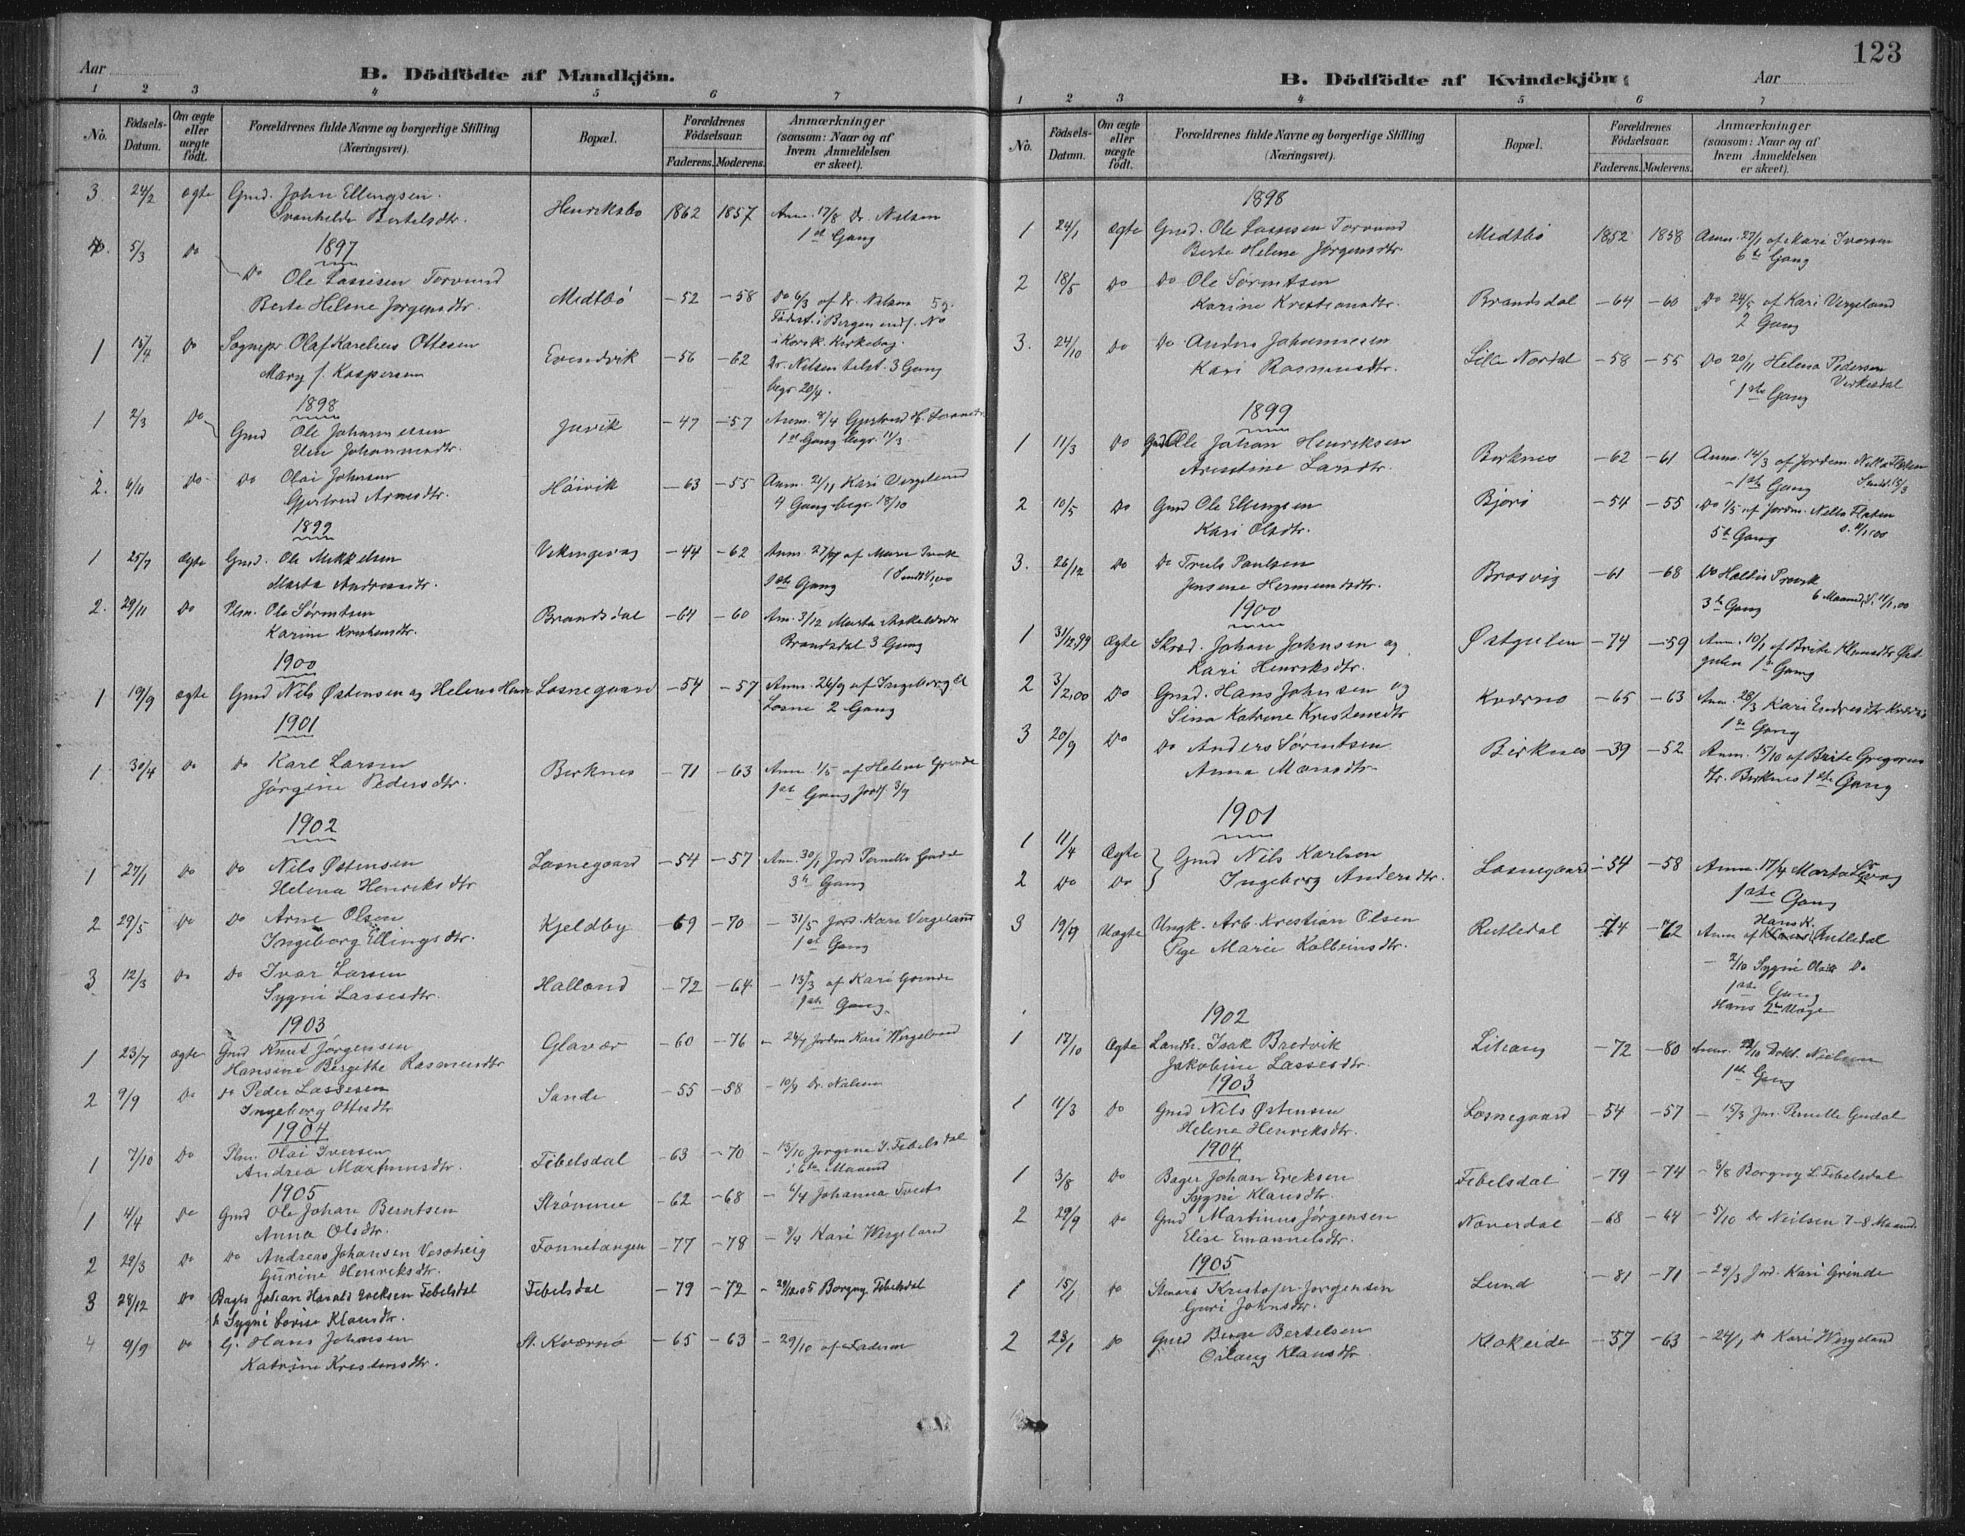 Aar
B. Dödfödte af Mandkjön.
1 2 3 4 5 6 7
No. Födsels-Datum. Om ægte eller uægte födt. Forældrenes fulde Navne og borgerlige Stilling (Næringsvei). Bopæl. Forældrenes Födselsaar. Faderens. Moderens. Anmærkninger (saasom: Naar og af hvem Anmeldelsen er skeet).
3 24/2 ægte Gmd. John Ellingsen Henriksbo 1862 1857 Anm. 17/8 Dr. Nilsen
Svanhilde Bertelsdtr. 1st Gang
1897
5/3 Do Do Ole Lassesen Torvund Midtbö -52 -58 Do 6/3 af Dr. Nilsen 5 g.
Berte Helene Jørgensdtr.
1 15/4 Do Sognepr. Olaf Karelius Ottesen Evindvik -56 -62 Dr. Nilsen tilst. 3 Gang
Mary f. Kaspersen begr 20/4.
1898
1 2/3 Do Gmd Ole Johannessen Juvik -47 -57 Anm. 8/4 Gjertrud H.
Johannesdtr. 1st Gang begr. 11/3.
2. 6/10 Do Do Olai Johnsen Höivik -63 -55 Anm. 21/11 Kari Vergeland
Gjertrud Arnesdtr. 4 Gang begr. 18/10
1899
1 25/7 Ægte Gmd. Ole Mikkelsen Vikingevåg -44 -62 Anm. 27/7 af
Marta Andreasdtr. 1ste Gang
2. 29/11 Do Plm. Ole Sørentsen Brandsdal -64 -60 Anm. 3/12 Marta
Karine Kristiansdtr. Brandsdal 3 Gang
1900
1 19/9 ægte Gmd Nils Østensen og Helene Henr Losnegaard -54 -57 Anm. 26/9 af Ingeborg
Losne 2 Gang
1901
1 30/4 Do Do Karl Larsen Birknes -71 -63 Anm. 1/5 af Helene Grinde
Jørgine Pedersdtr. 1ste Gang
1902
1 27/1 Do Do Nils Østensen Losnegaard -54 -57 Anm. 30/1 Jord Pernelle
Helena Henriksdtr 3de Gang
2 29/5 Do Do Arne Olsen Kjeldby -69 -70 - 31/5 Jord. Kari Vergeland
Ingeborg Ellingsdtr. 1st Gang
3 12/3 Do Do Ivar Larsen Halland -72 -64 - 13/3 af Kari Grinde
Sygni Lassesdtr. 1ste Gang.
1903
1 23/7 ægte Gmd Knut Jørgensen Glavær -60 -76 - 24/7 Jordm Kari Wergeland
Hansine Bergithe Rasmusdtr
2 9/9 Do Do Peder Lassesen Sande -55 -58 - 10/9 Dr. Nilsen
Ingeborg Ottesdtr
1904
1 7/10 Do Plm. Olai Iversen Tibelsdal -63 -70 - 13/10 Jørgine J. Febelsdal
Andrea Martinusdtr. i 6te Maaned
1905
1 4/4 Do Gmd Ole Johan Berntsen Strømme -62 -68 - 6/4 Johanna Tveit
Anna Olsdtr.
2 29/3 Do Do Andreas Johansen Fonnetangen -77 -78 - 8/4 Kari Wergeland
Gurine Henriksdtr.
3 28/12 Do Bager Johan Harald Ereksen Febelsdal Febelsdal -79 -72 - 29/12 05 Borgny Febelsdal
& Sygni Lovise Klausdtr.
4 9/9 Do G. Hans Johnsen St. Kværnø -65 -63 - 29/10 af Faderen
Katrine Kristensdtr.
123
B. Dödfödte af Kvindekjön. Aar
1 2 3 4 5 6 7
No. Födsels-Datum. Om ægte eller uægte födt. Forældrenes fulde Navne og borgerlige Stilling (Næringsvei). Bopæl. Forældrenes Födselsaar. Faderens. Moderens. Anmærkninger (saasom: Naar og af hvem Anmeldelsen er skeet).
1898
1 24/1 ægte Gmd. Ole Lassesen Torvund Midtbö 1852 1858 Anm. 27/1 af Kari Iversen
Berte Helene Jørgensdtr. 6te Gang
2 18/5 Do Do Ole Sørentsen Brandsdal -64 -60 Do 24/5 af Kari Vergeland
Karine Kristiansdtr. 2 Gang
3. 24/10 Do Do Anders Johannesen Lille Nordal -58 -55 Do 20/11 Helena Pedersen
Kari Rasmusdtr. 1ste Gang
1899
1 11/3 Do Gmd Ole Johan Henriksen Birknes -62 -61 Anm. 14/3 af Jordm. Nella Flaten
Larsdtr. 1ste Gang
2 10/5 Do Gmd Ole Ellingsen Bjørø -54 -55 Do af Jordm. Nella Flaten
Kari Olsdtr. 5te Gang
3. 26/12 Do Do Truls Paulsen Brosvig -61 -68 Do
Jensine Hermundsdtr. 3de Gang
1900
1 31/12,99 Ægte Skræd. Johan Johnsen og Østgulen -74 -59 Anm. 10/1 af Brite
Kari Henriksdtr. gulen 1st Gang
2 3/2,00 Do Gmd. Hans Johnsen og Kværnø -65 -63 Anm. 28/3 Kari
Sina Katrine Kristensdtr 1te Gang
3 20/9 Do Do Anders Sørentsen Birknes -39 -52 Anm. 15/10 af Brite Gregorius
Anna Monsdtr. dtr. Birknes 1ste Gang
1901
1 11/4 Ægte Gmd Nils Karlsen Losnegaard -54 -58 Anm. 17/4 Marta
2 Do Do Ingeborg Andersdtr. 1ste Gang
3 19/9 Uægte Ungk. Arb. Kristian Olsen Rutledal -74 -72 Anm af Rutledal
Pige Marie Kolbeinsdtr. - 2/10 Sygni
1ste Gang
1902
1 17/10 Ægte Landh. Isak Bredvik Lihaug -72 -80 Anm. Dokt. Nielsen
Jakobine Lassesdtr. 1ste Gang
1903
1 11/3 Do Gmd Nils Østensen Losnegaard -54 -57 - 15/3 Pernille Gudal
Helene Henriksdtr.
1904
1 3/8 Do Bager Johan Ereksen Febelsdal -79 -74 - 3/8 Borgny L Febelsdal
Sygni Klausdtr.
2 29/9 Do Gmd Martinus Jørgensen Noverdal -68 -64 - 5/10 Dr Neilsen 7-8 Maaned
Elise Emanuelsdtr.
1905
1 15/1 Do Kristofer Jørgensen Lund -81 -71 - 29/3 Jord. Kari Grinde
Guri Johnsdtr.
2 23/1 Do Gmd Børge Bertelsen Klokeide -57 -63 - 24/1 Do Kari Wergeland
Klausdtr